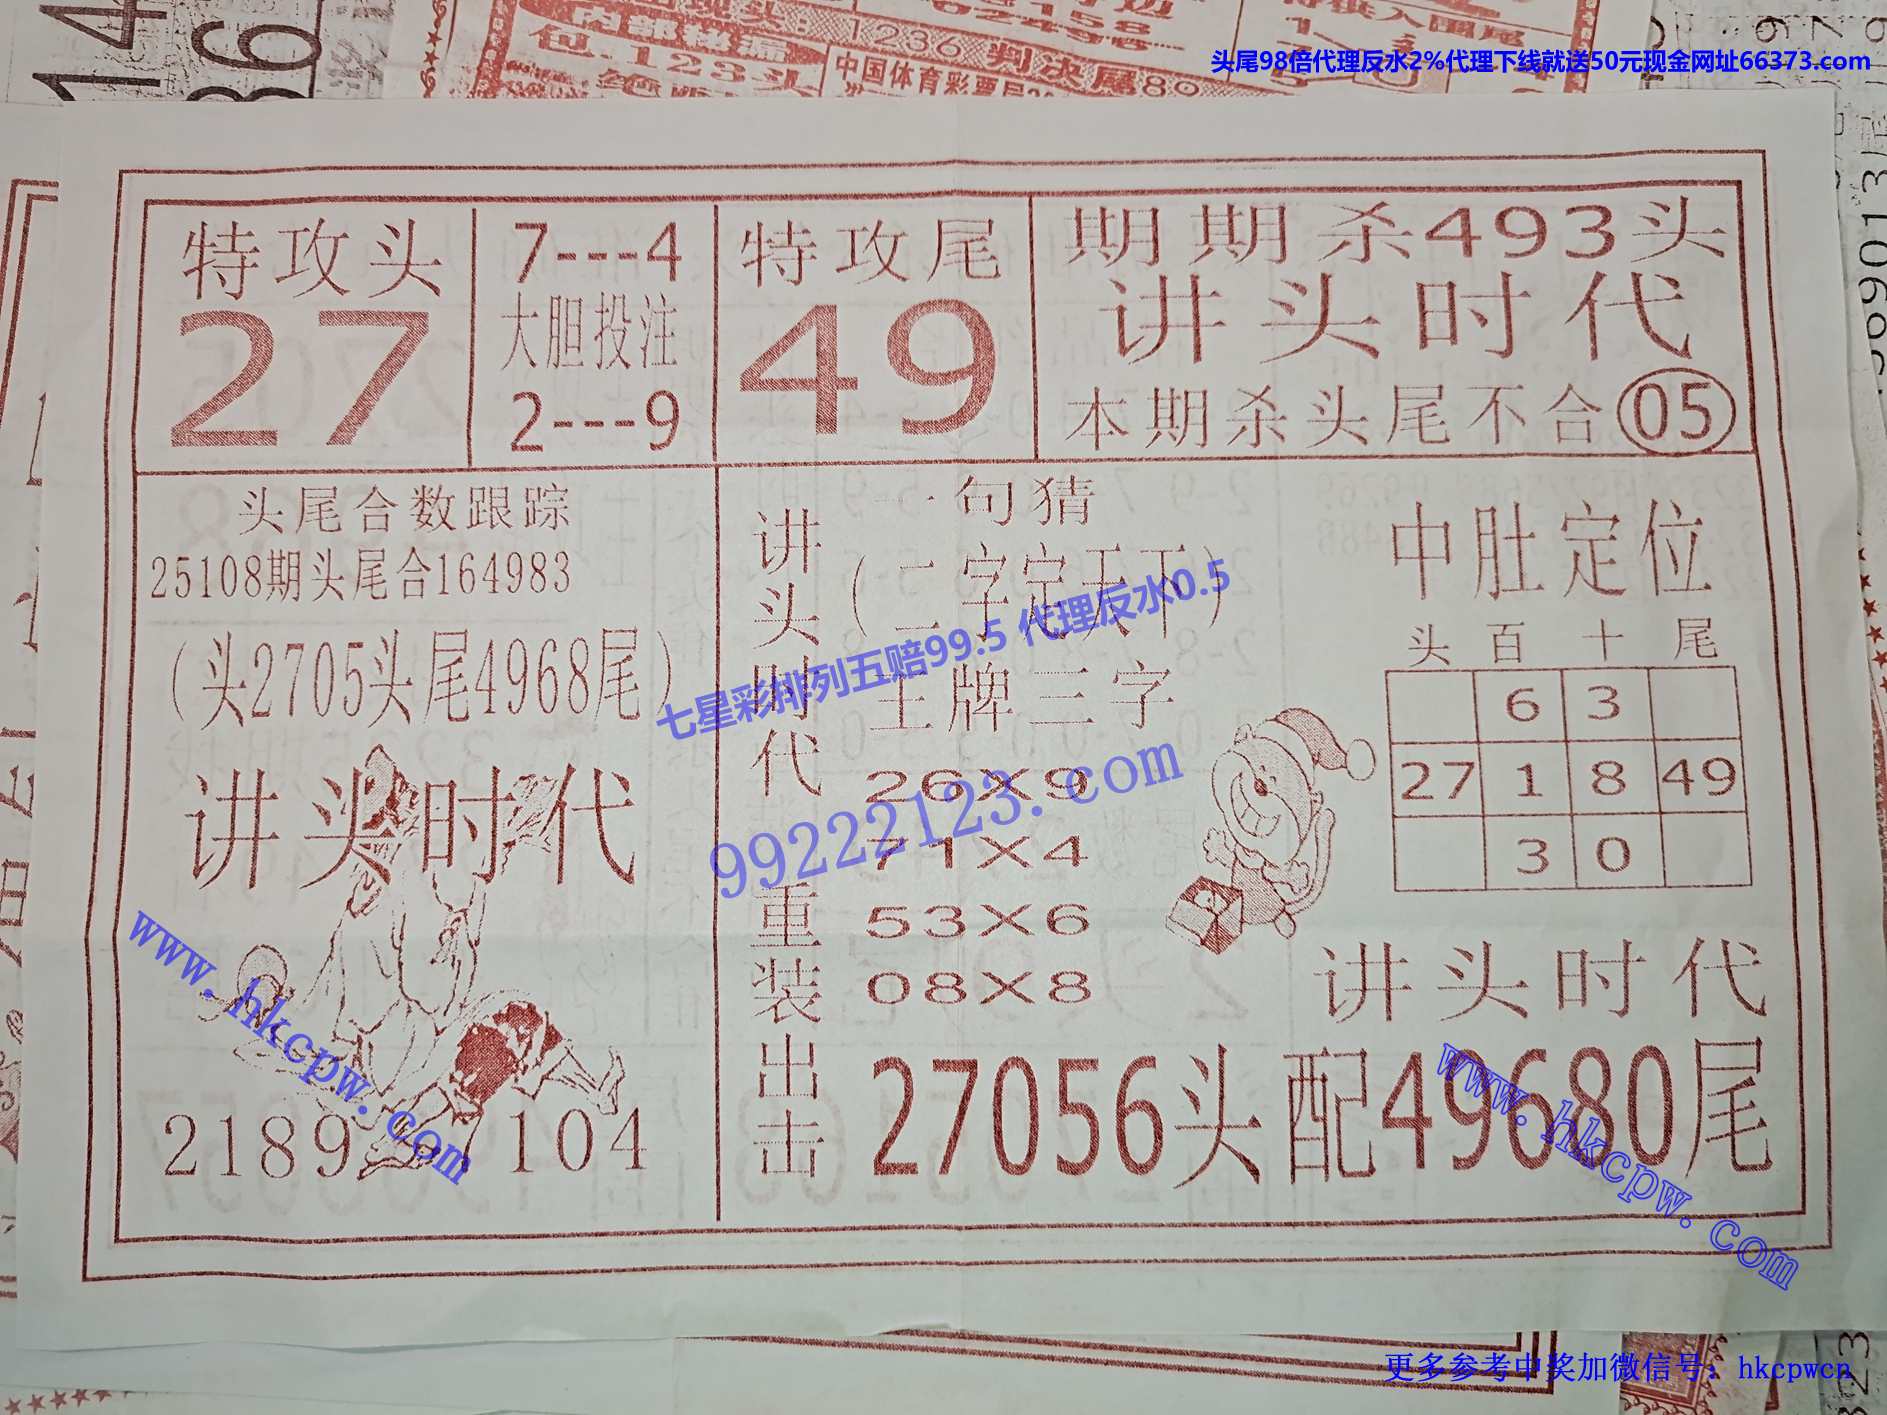 头尾98倍代理反水2%代理下线就送50元现金网址66373.com
1236 判决尾80
包.123头
中国体育彩票局
特攻头
27
7---4
大胆投注
2---9
特攻尾
49
期期杀493头
讲头时代
本期杀头尾不合05
头尾合数跟踪
25108期头尾合164983
(头2705头尾4968尾)
讲头时代
2189 104
讲头时代 重装出击
一句猜
(二字定天下)
王牌三字
26X9
71X4
53X6
08X8
中肚定位
头 百 十 尾
6 3
27 1 8 49
3 0
讲头时代
27056头配49680尾
七星彩排列五赔99.5 代理反水0.5
99222123.com
www.hkcpw.com
www.hkcpw.com
更多参考中奖加微信号：hkcpwcn